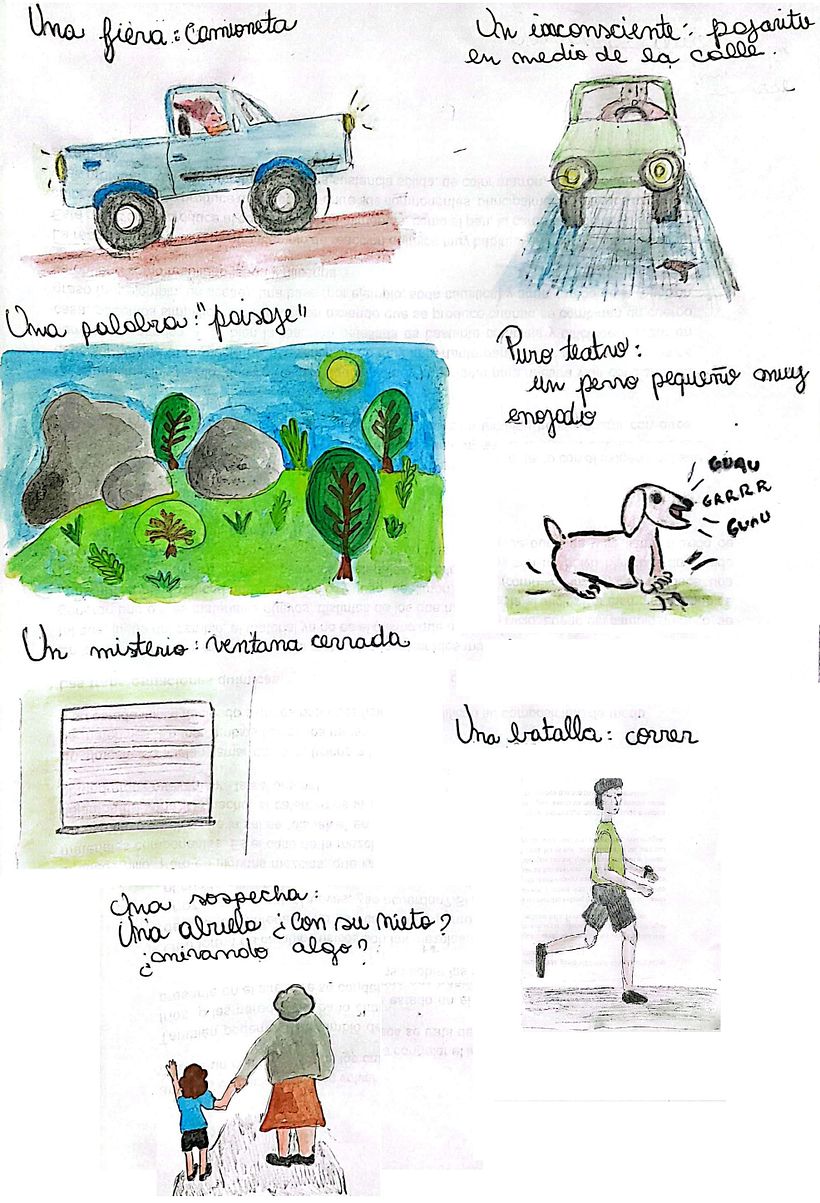 Una fiera: camioneta
Un inconsciente: pajarito
en medio de la calle.
Una palabra: "paisaje"
Puro teatro:
un perro pequeño muy
enojado
GUAU
GRRRR
GUAU
Un misterio: ventana cerrada
Una batalla: correr
Una sospecha:
Una abuela ¿con su nieto?
¿mirando algo?